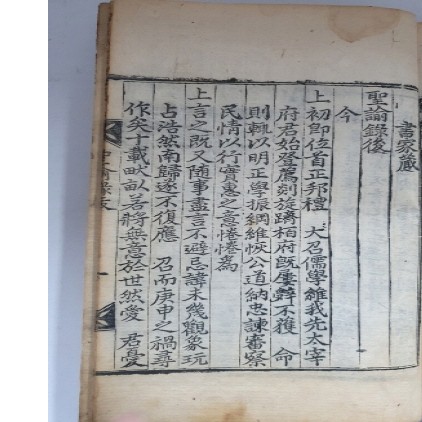 書察蔵
聖諭錄後
今
上初即位首正邦禮 大召儒學維我先太宰
府君始登薦刻旋躋柏府旣屢辭不獲 命
則輒以明正學振綱維恢公道納忠諫審察
民情以行實惠之意惓惓爲
上言之旣又隨事盡言不避忌諱未幾觀象玩
占浩然南歸遂不復應 召而庚申之禍尋
作矣十載畎畝若將無意於世然愛 君憂